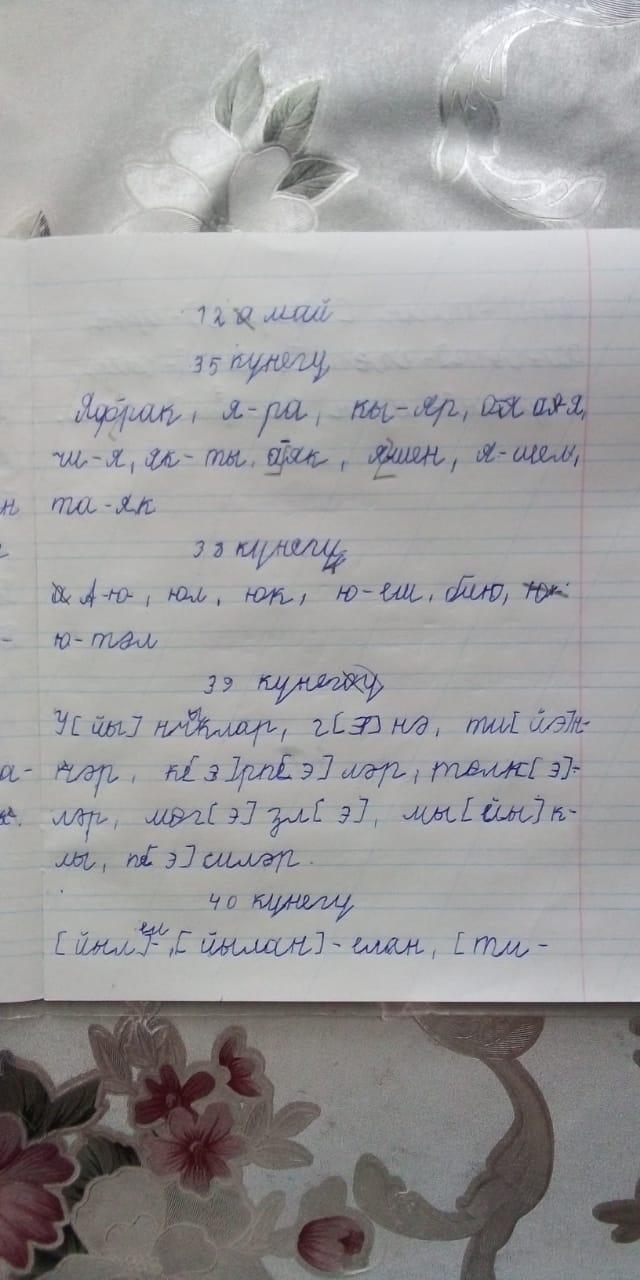 12 май
35 күнегү
Яфрак, я-ра, кы-яр, оя-я,
чи-я, як-ты, аяк, яшен, я-шел,
та-як
38 күнегү
А-ю, юл, юк, ю-еш, бию,
ю-тәл
39 күнегү
У[йы]нчыклар, г[э]нә, ти[йэ]н-
нәр, ке[э]рпе[э]ләр, төлк[э]-
ләр, мөг[э]зл[э], мы[йы]к-
лы, пе[э]силәр.
40 күнегү
[йыл]-ел, [йылан]-елан, [ти-
н
а-